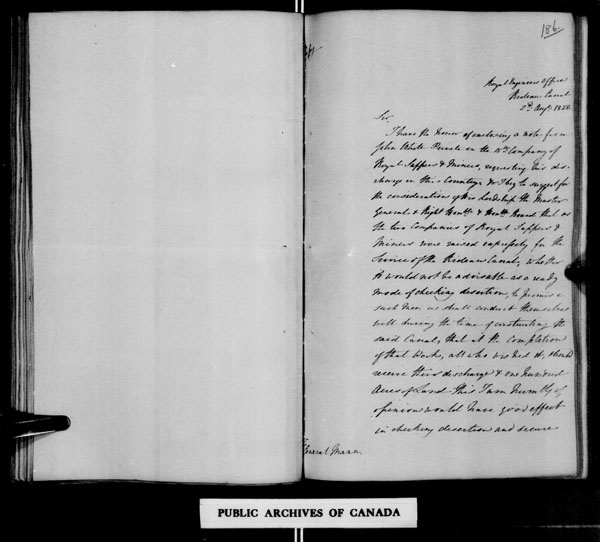 186
Royal Engineer Office
Rideau Canal
2d. Augt. 1828
Sir,
I have the honor of enclosing a note from
John White Private in the 15th Company of
Royal Sappers & Miners, requesting his dis-
charge in this Country, & I beg to suggest for
the consideration of His Lordship the Master
General & Right Honble. & Honble. Board that as
the two Companies of Royal Sappers &
Miners were raised expressly for the
Service of the Rideau Canal, whether
it would not be advisable as a ready
mode of checking desertion, to promise
such men as shall conduct themselves
well during the time of constructing the
said Canal, that at the completion
of that Work, all who wished it, should
receive their discharge & one hundred
Acres of Land. This I am humbly of
opinion would have good effect
in checking desertion and secure
General Mann
PUBLIC ARCHIVES OF CANADA